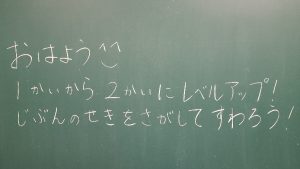 おはよう
1かいから2かいにレベルアップ!
じぶんのせきをさがしてすわろう!